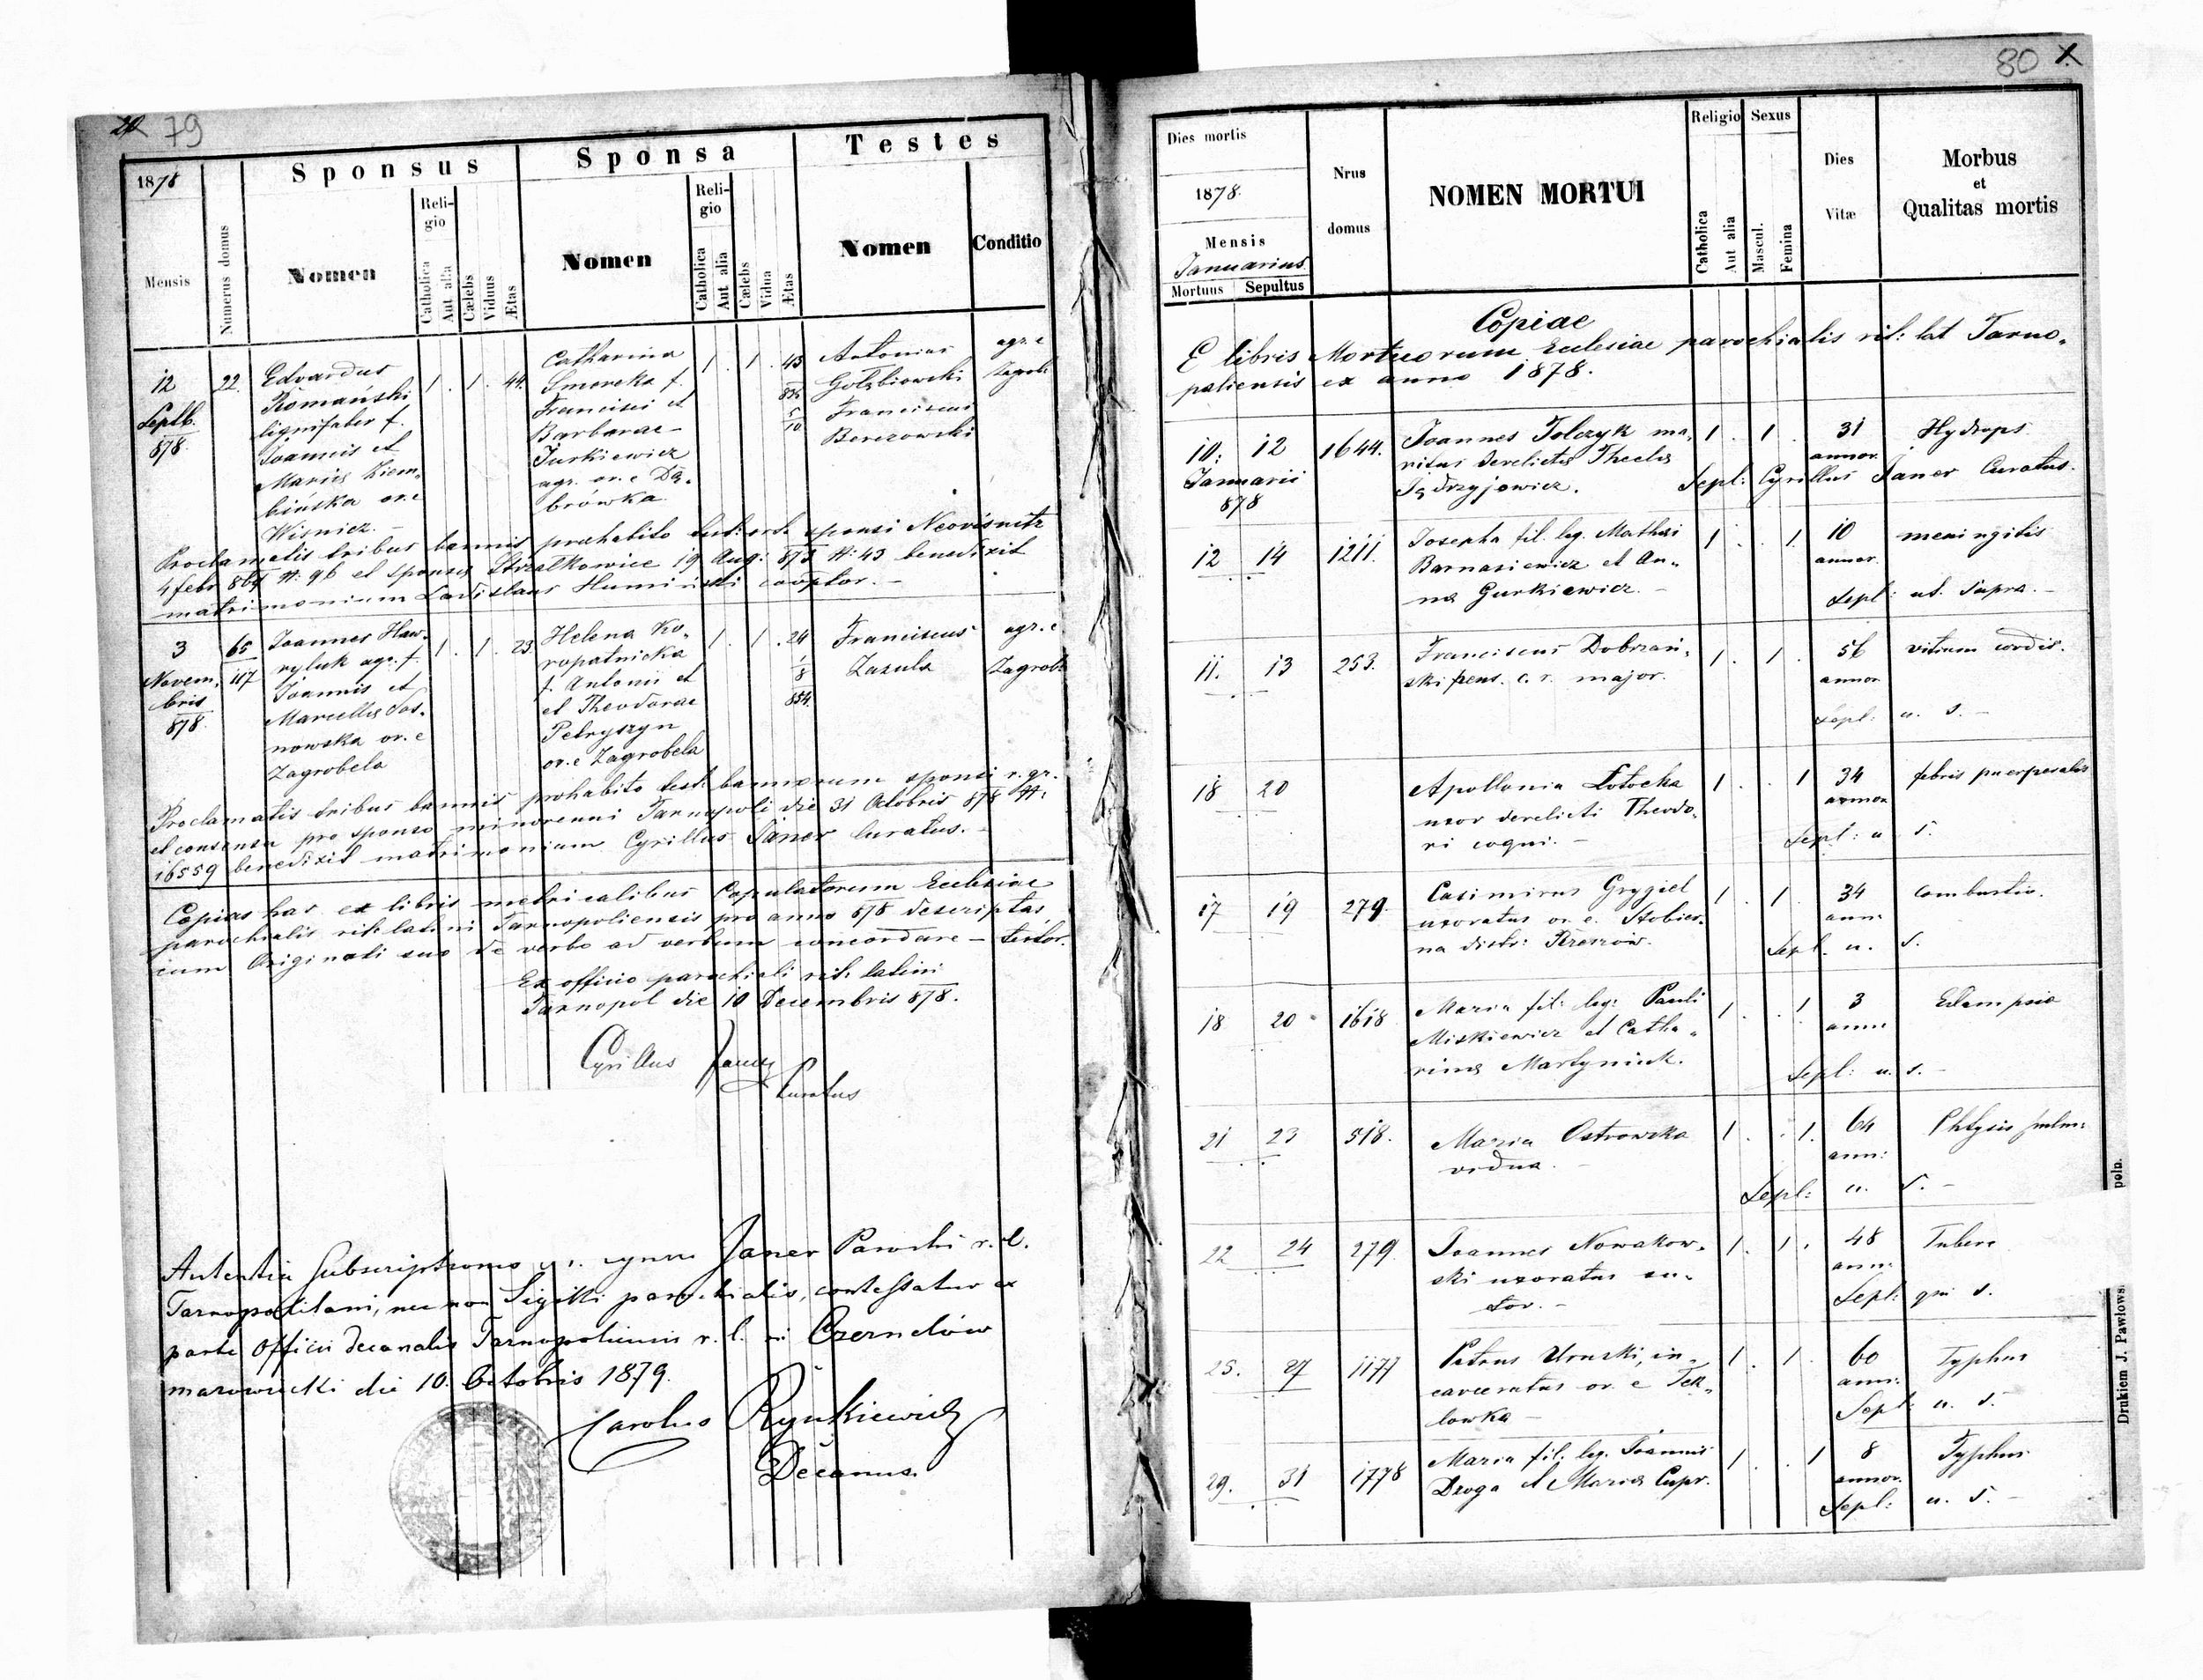 79
1878
Mensis
Numerus domus
Sponsus
Nomen
Religio
Catholica
Aut alia
Cælebs
Viduus
Ætas
Sponsa
Nomen
Religio
Catholica
Aut alia
Cælebs
Vidua
Ætas
Testes
Nomen
Conditio
12
Septb.
878
22.
Edvardus
Romański
lignifaber f.
Joannis et
Mariæ Ziem„
bińska or. e
Wisnicz. –
1 . 1 . 44.
Catharina
Smereka f.
Francisci et
Barbarae
Jurkiewicz
agr. or. e Dą„
brówka
1 . 1 . 43
5
10
Antonius
Gołębiowski
Franciscus
Berezowski
agr. e
Zagrob.
Proclamatis tribus bannis prohabito sponsi Neovisnitz
4 febr 864 N: 96 et sponsæ Strzałkowice 19 Aug: 873 N: 43 benedixit
matrimonium Ladislaus Humiński cooptor. –
3
Novem„
bris
878.
65
117
Joannes Haw„
ryluk agr. f.
Joannis et
Marcellæ Sos„
nowska or. e
Zagrobela
1 . 1 . 23.
Helena Ko„
ropatnicka
f. Antonii et
et Theodorae
Petryszyn
or. e Zagrobela
1 . 1 . 24
1
8
854.
Franciscus
Zazula
agr. e
Zagrob.
Proclamatis tribus bannis prohabito test: bannorum sponsi r. gr.
et consensu pro sponso minorenni Tarnopoli die 31 Octobris 878 N:
16559 benedixit matrimonium Cyrillus Janer Curatus. –
Copias has ex libris metricalibus Copulatorum Ecclesiae
parochialis rit: latini Tarnopoliensis pro anno 878 descriptas
cum Originali suo de verbo ad verbum concordare – testor.
Ex officio parochiali rit: latini
Tarnopol die 10 Decembris 878.
Cyrillus Janer
Curatus
Subscriptionis Janer
Tarnopolitani, nec non Sigilli parochialis, contestatur ex
parte Officii decanalis Tarnopoliensis r. l. in Czernelów
mazowiecki die 10. Octobris 1879.
Carolus Rynkiewicz
Decanus.
80
Dies mortis
1878.
Mensis
Januarius.
Mortuus
Sepultus
Nrus
domus
NOMEN MORTUI
Religio
Catholica
Aut alia
Sexus
Mascul.
Femina
Dies
Vitæ
Morbus
et
Qualitas mortis
Copiae
E libris Mortuorum Ecclesiae parochialis rit: lat Tarno„
poliensis ex anno 1878.
10: 12 1644. Joannes Tolczyk ma„ 1 . 1 . 31 Hydrops
Januarii ritus derelictus Theclæ annor.
878 Jędrzyjowicz. Sepl: Cyrillus Janer Curatus.
12 14 1211. Josepha fil. leg. Mathæi 1 . . 1. 10 meningitis
Barnasiewicz et An„ annor.
na Gurkiewicz. – Sepl: ut. supra. –
11. 13 253. Franciscus Dobrzań„ 1. . 1. 56 vitium cordis.
ski pens. c. r. major. annor
Sepl: u. s. –
18 20 Apollonia Łotocka 1 . . 1 34 febris puerperalis
uxor derelicti Theodo„ annor
ri coqui. – Sepl: u s.
17 19 279. Casimirus Grygiel 1 . 1. 34 Combustio.
uxoratus or. e. Stobier„ ann.
na distr: Rzeszów. Sepl. u. s.
18 20 1618 Maria fil: leg: Pauli 1 . . 1 3 Eclampsia
Miskiewicz et Catha„ anni
rinæ Martyniuk. Sepl: u. s. –
21 23 518. Maria Ostrowska 1 . . 1. 64 Phtysis pulm:
vidua. – ann:
Sepl: u. s. –
22 24 279 Joannes Nowakow„ 1. 1. 48
ski uxoratus su„ ann.
tor. – Sepl: s.
25. 27 1177 Petrus Uruski, in„ 1. . 1. 60 Typhus
carceratus or. e Tek„ ann.
lowka – Sepl: u. s.
29. 31 1778 Maria fil. leg. Joannis 1 . . 1 8 Typhus
Droga et Mariæ Cupr. annor.
Sepl: u. s. –
Drukiem J. Pawłows.
poln.